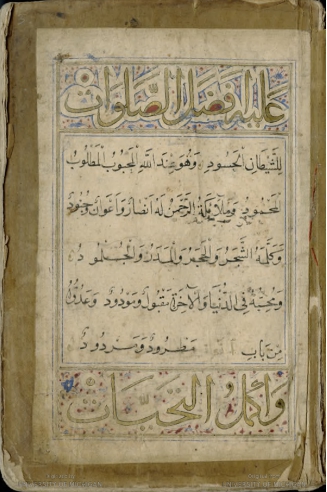 عليه افضل الصلوات
للشيطان الحسود وهو عند الله المحبوب المطلوب
المحمود وملائكة الرحمن له انصار واعوان وجنود
وكلمه الشجر والحجر والمدر والجلمود
ومحبه في الدنيا والآخرة مقبول ومودود وعدوه
من باب مطرود ومردود
واكمل التحيات